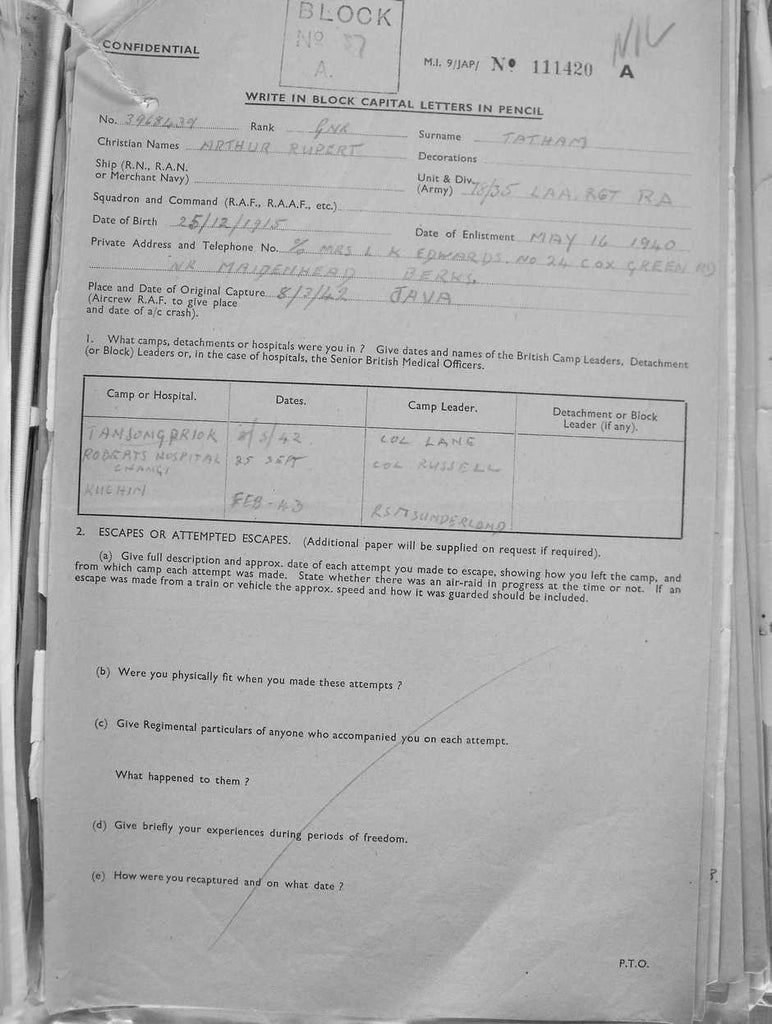 BLOCK
Nº 37
A.
NIL
CONFIDENTIAL
M.I. 9/JAP/ Nº 111420 A
WRITE IN BLOCK CAPITAL LETTERS IN PENCIL
No. 3968439 Rank GNR Surname TATHAM
Christian Names ARTHUR RUPERT Decorations
Ship (R.N., R.A.N.
or Merchant Navy)
Unit & Div.
(Army) 78/35 LAA. RGT RA
Squadron and Command (R.A.F., R.A.A.F., etc.)
Date of Birth 25/12/1915 Date of Enlistment MAY 16 1940
Private Address and Telephone No. C/O MRS L K EDWARDS. NO 24 COX GREEN RD
NR MAIDENHEAD BERKS.
Place and Date of Original Capture 8/3/42 JAVA
(Aircrew R.A.F. to give place
and date of a/c crash).
1. What camps, detachments or hospitals were you in ? Give dates and names of the British Camp Leaders, Detachment
(or Block) Leaders or, in the case of hospitals, the Senior British Medical Officers.
Camp or Hospital. Dates. Camp Leader. Detachment or Block
Leader (if any).
TANJONGPRIOK 8/5/42. COL LANE
ROBERTS HOSPITAL 25 SEPT COL RUSSELL
CHANGI
KUCHIN FEB-43 RSM SUNDERLAND
2. ESCAPES OR ATTEMPTED ESCAPES. (Additional paper will be supplied on request if required).
(a) Give full description and approx. date of each attempt you made to escape, showing how you left the camp, and
from which camp each attempt was made. State whether there was an air-raid in progress at the time or not. If an
escape was made from a train or vehicle the approx. speed and how it was guarded should be included.
(b) Were you physically fit when you made these attempts ?
(c) Give Regimental particulars of anyone who accompanied you on each attempt.
What happened to them ?
(d) Give briefly your experiences during periods of freedom.
(e) How were you recaptured and on what date ?
P.T.O.